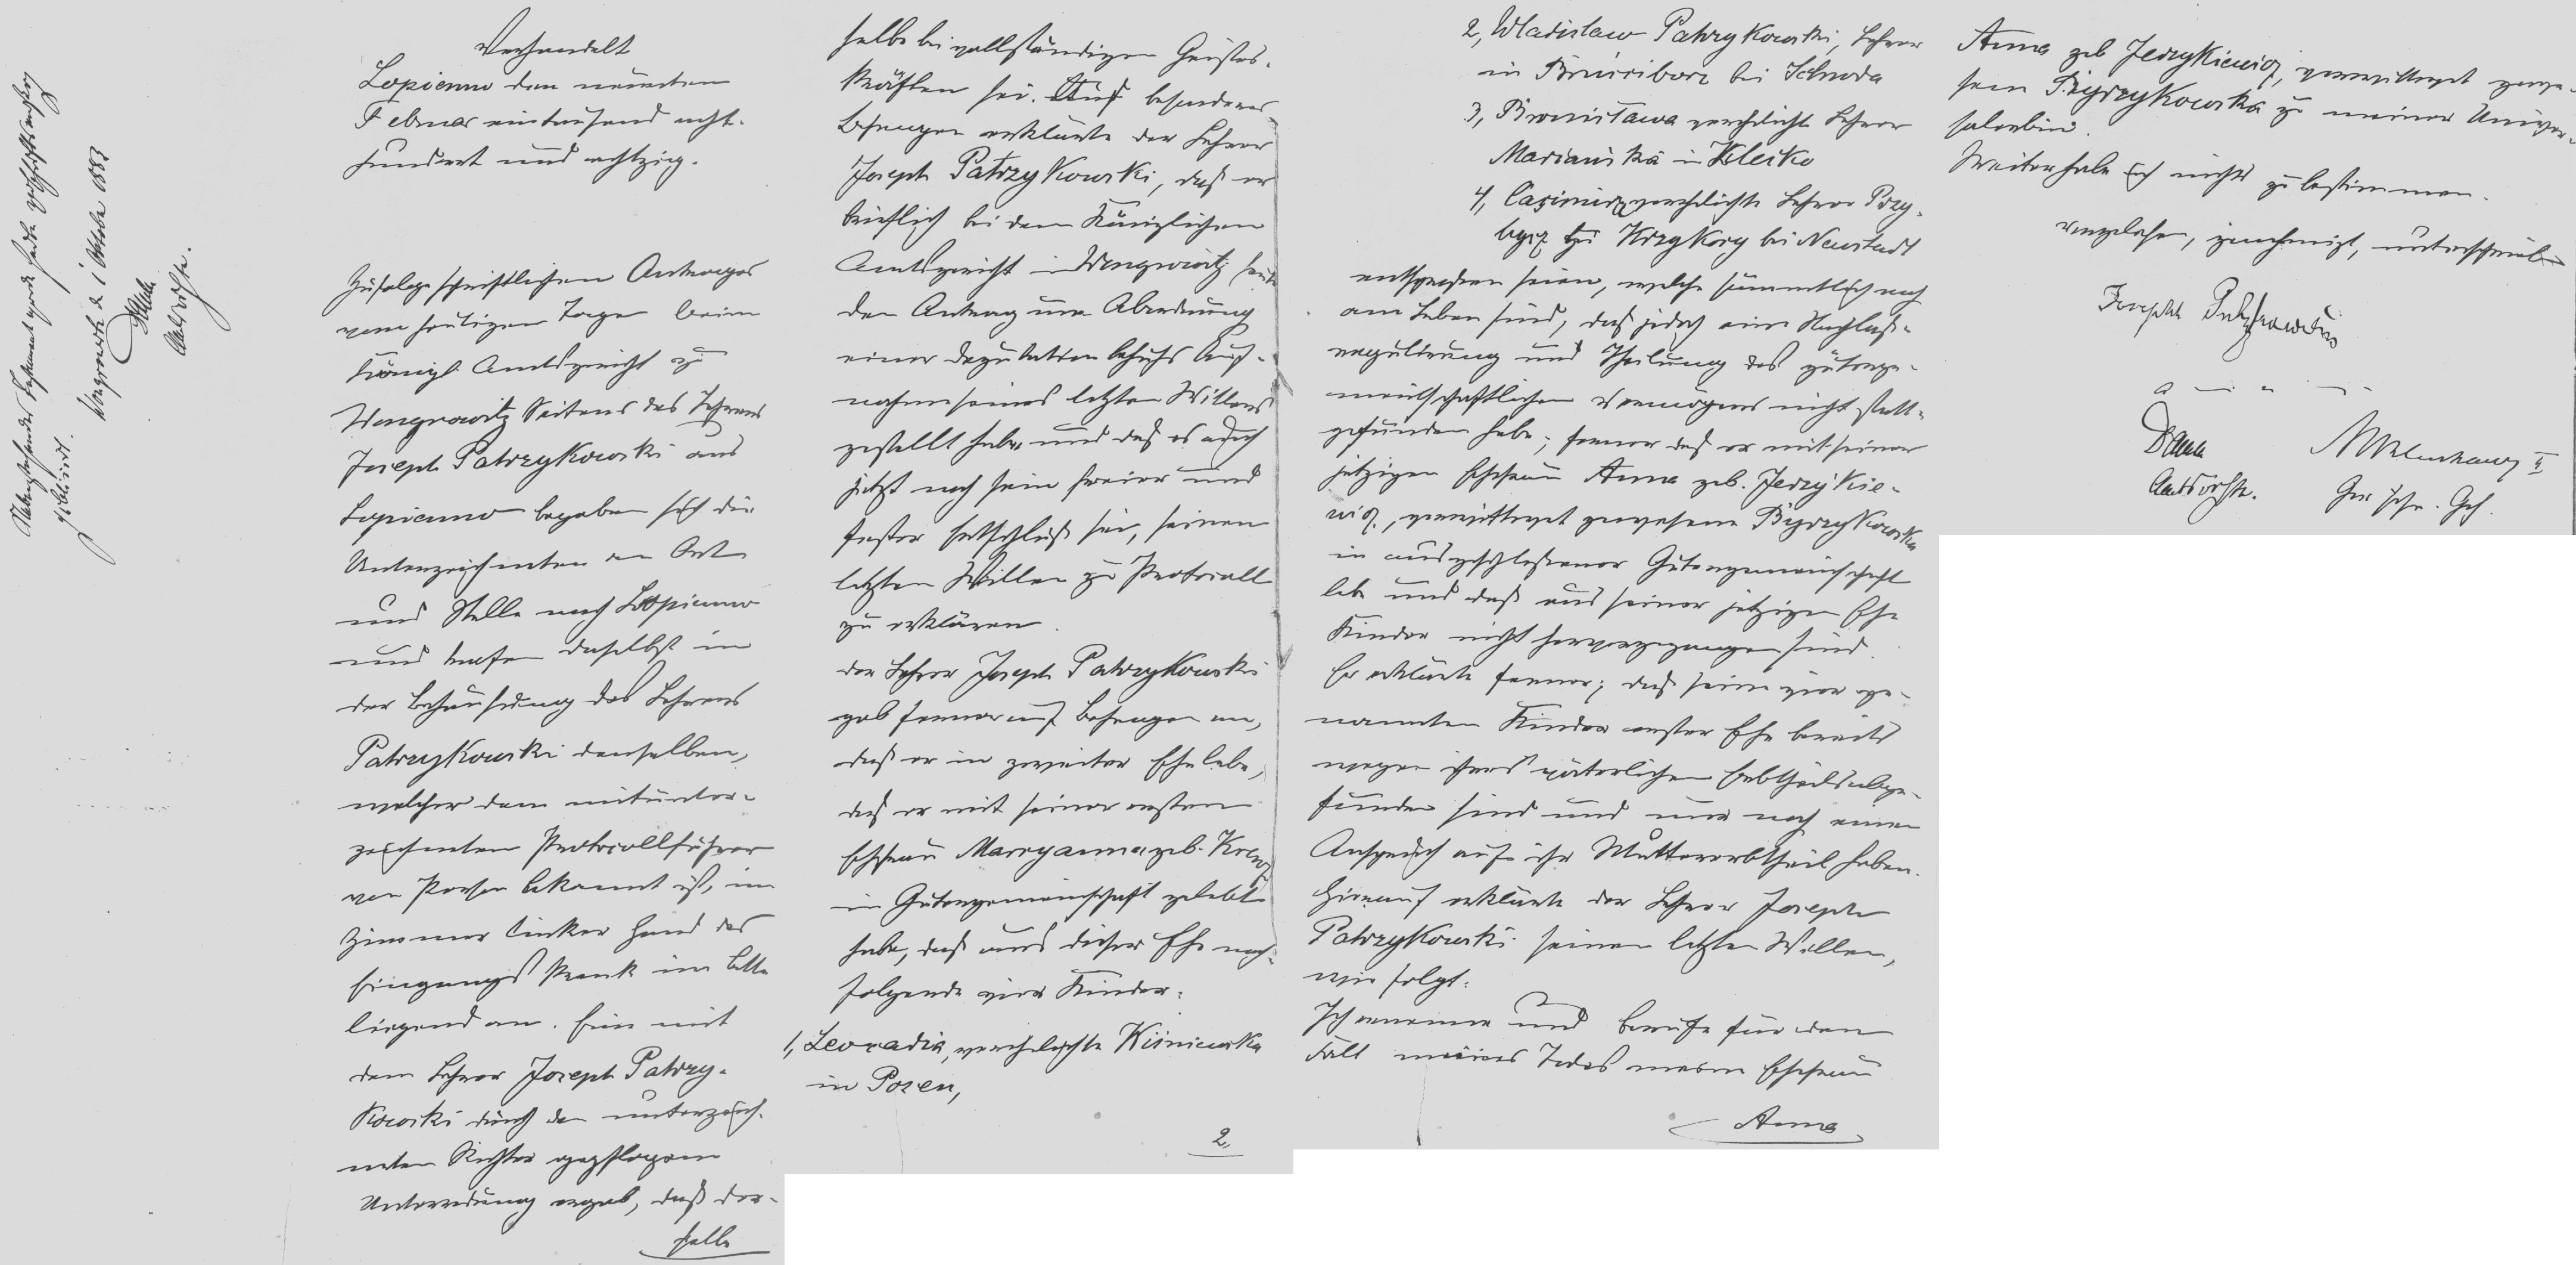 Nebenstehendes Testament wurde heute vorschriftsmäßig
publicirt.
Wongrowitz d. 1 Oktober 1883
Amtsrichter.
Verhandelt
Lopienno den neunten
Februar eintausend acht-
hundert und achtzig.
Zufolge schriftlichen Antrages
vom heutigen Tage beim
Königl. Amtsgericht zu
Wongrowitz Seitens des Lehrers
Joseph Patrzykowski aus
Lopienno begaben sich die
Unterzeichneten an Ort
und Stelle nach Lopienno
und trafen daselbst in
der Behausung des Lehrers
Patrzykowski denselben,
welcher dem mitunter-
zeichneten Protocollführer
von Person bekannt ist, im
Zimmer linker Hand des
Eingangs krank im Bette
liegend an. Eine mit
dem Lehrer Joseph Patrzy-
kowski durch den unterzeich-
neten Richter gepflogene
Unterredung ergab, daß der-
selbe
selbe bei vollständigen Geistes-
kräften sei. Auf besonderes
Befragen erklärte der Lehrer
Joseph Patrzykowski, daß er
brieflich bei dem Königlichen
Amtsgericht in Wongrowitz heute
den Antrag um Abordnung
einer Deputation behufs Auf-
nahme seines letzten Willens
gestellt habe und daß es auch
jetzt noch sein freier und
fester Entschluß sei, seinen
letzten Willen zu Protocoll
zu erklären.
Der Lehrer Joseph Patrzykowski
gab ferner auf Befragen an,
daß er in zweiter Ehe lebe,
daß er mit seiner ersten
Ehefrau Maryanna geb.
in Gütergemeinschaft gelebt
habe, daß aus dieser Ehe nach-
folgende vier Kinder:
1, Leocadia, verehelichte Wisniewska
in Posen,
2,
2, Wladislaw Patrzykowski, Lehrer
in bei Schroda
3, Bronislawa verehelicht Lehrer
Marianska in Kletzko
4, Casimira verehelichte Lehrer Przy-
bei Neustadt
entsprossen seien, welche sämmtlich noch
am Leben sind, daß jedoch eine Nachlaß-
regulirung und Theilung des güterge-
meinschaftlichen Vermögens nicht statt-
gefunden habe; ferner daß er mit seiner
jetzigen Ehefrau Anna geb. Jerzykie-
wicz, verwittwet gewesene Bydrzykowska
in ausgeschlossener Gütergemeinschaft
lebe und daß aus seiner jetzigen Ehe
Kinder nicht hervorgegangen sind.
Er erklärte ferner; daß seine vier ge-
nannten Kinder erster Ehe bereits
wegen ihres väterlichen Erbtheils abge-
funden sind und nur noch einen
Anspruch auf ihr Muttererbtheil haben.
Hierauf erklärte der Lehrer Joseph
Patrzykowski seinen letzten Willen,
wie folgt:
Ich ernenne und berufe für den
Fall meines Todes meine Ehefrau
Anna
Anna geb Jerzykiewicz, verwittwet gewe-
sene Bydrzykowska zu meiner Univer-
salerbin.
Weiter habe ich nichts zu bestimmen.
vorgelesen, genehmigt, unterschrieben
Joseph Patrzykowski
a u s
Amtsrichter. Ger. schr. Geh.